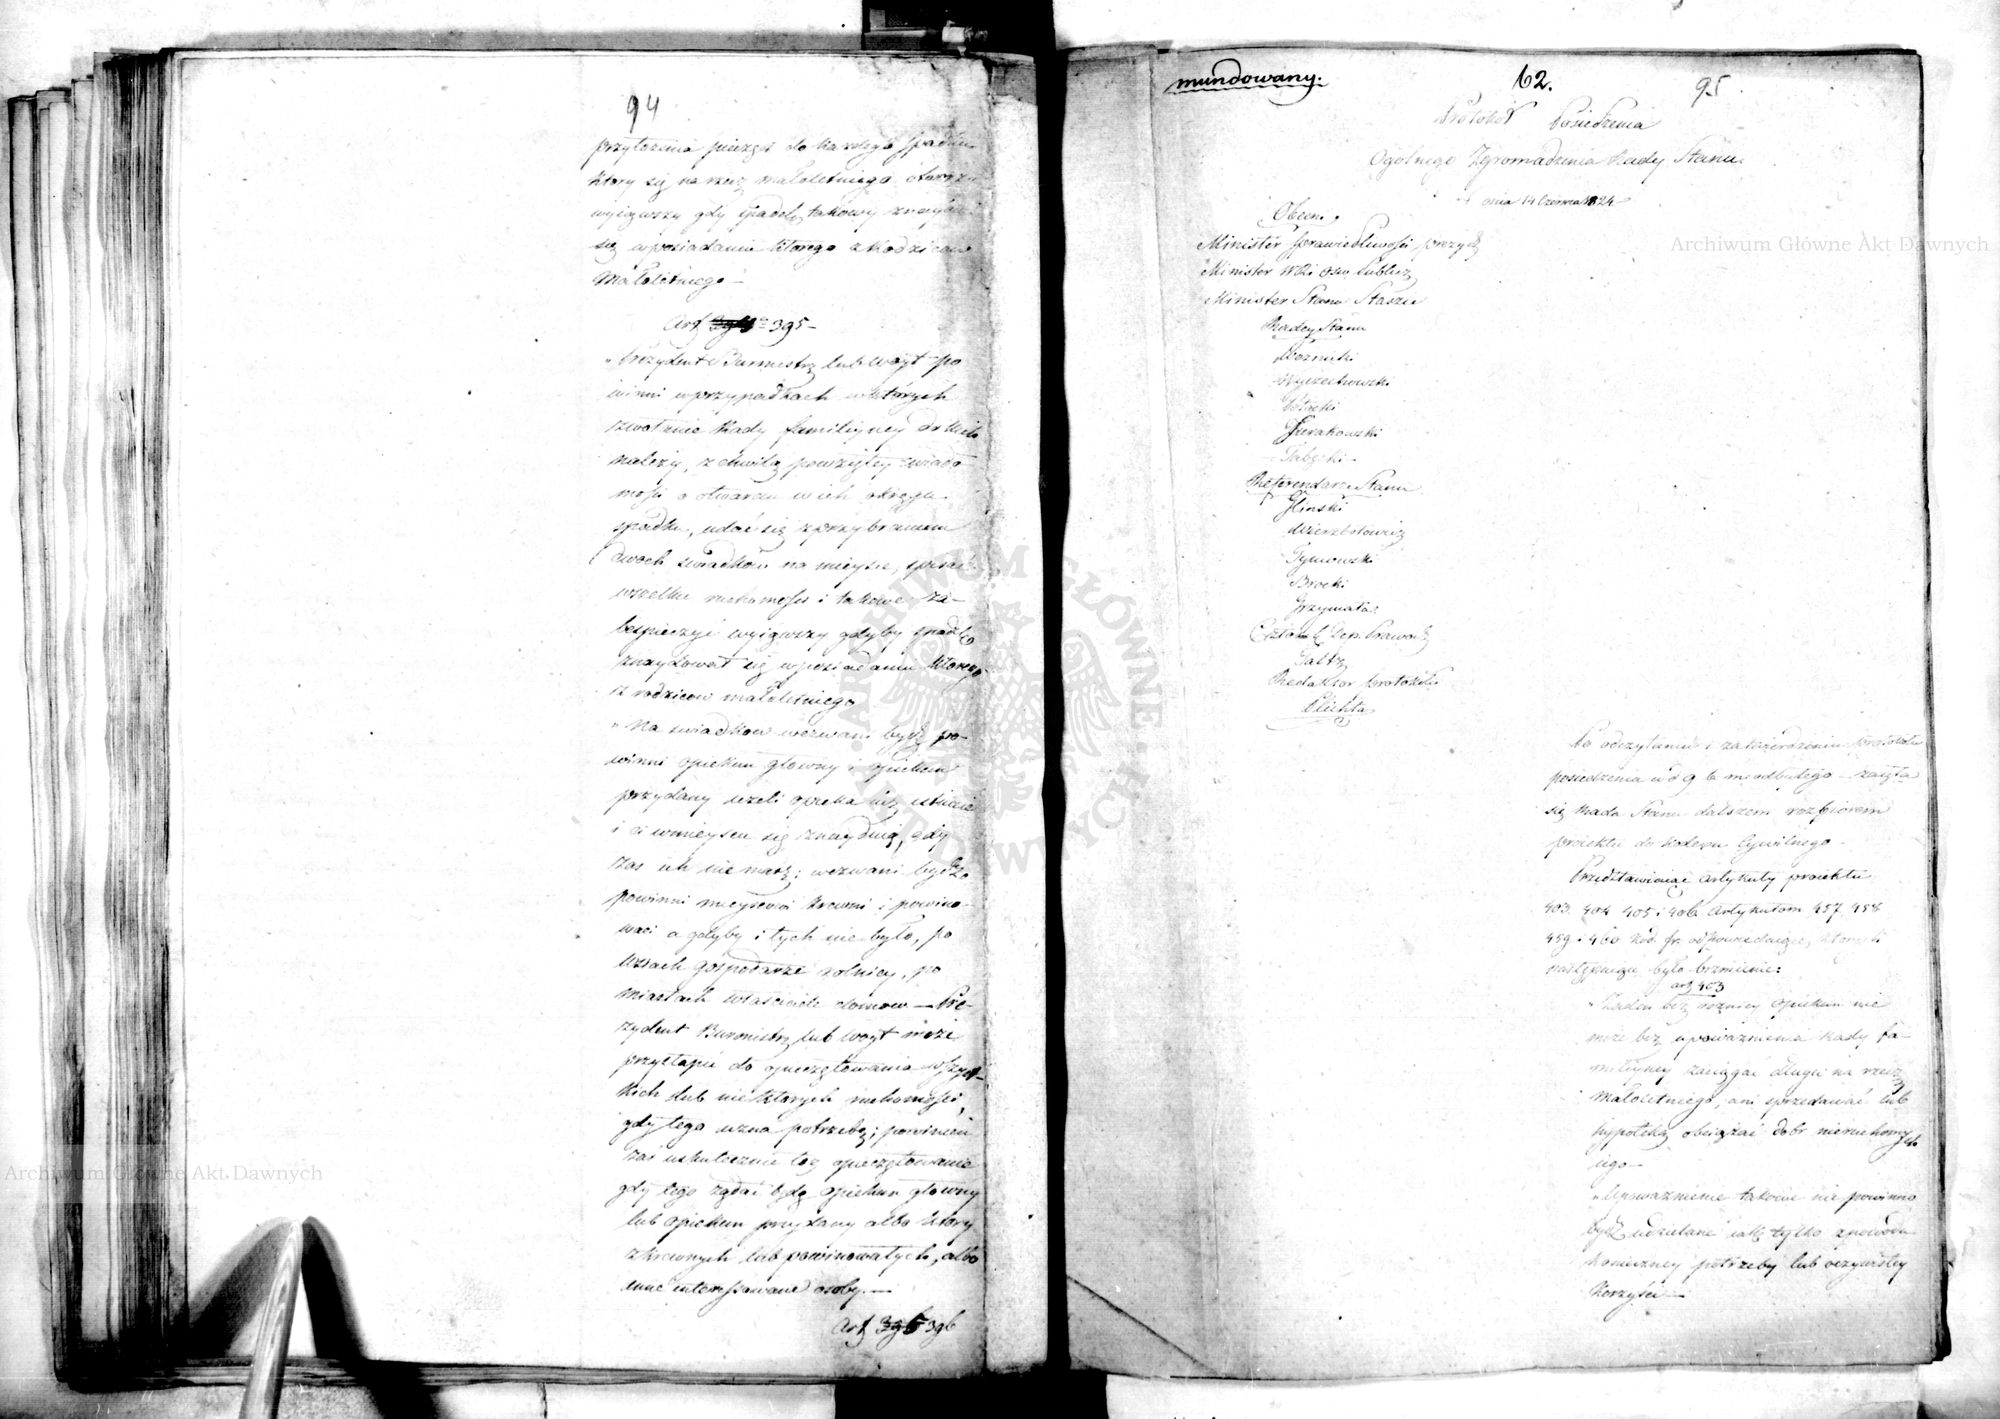 94
przyłożenia pieczęci do każdego spadku
który się na rzecz małoletniego otworzy
wyiąwszy gdy spadek takowy znayduie
się w posiadaniu którego z Rodziców
Małoletniego —
Art 395 —
„Prezydent Burmistrz lub Woyt po
winni w przypadkach w których
zwołanie Rady familiyney do nich
należy, z chwilą powziętey wiado
mości o otwarciu w ich okręgu
spadku, udać się z przybraniem
dwóch świadków na mieysce, spisać
wszelkie ruchomości i takowe za-
bespieczyć wyiąwszy gdyby spadek
znaydował się w posiadaniu którego
z rodziców małoletniego
„Na świadków wezwani bydź po-
winni opiekun główny i opiekun
przydany ieżeli opieka iuż istnieie
i ci w mieyscu się znayduią, gdy
zaś ich nie masz; wezwani bydź
powinni mieyscowi krewni i powino-
waci a gdyby i tych nie było, po
wsiach gospodarze rolnicy, po
miastach właściciele domów — Pre-
zydent Burmistrz lub Woyt może
przystąpić do opieczętowania wszyst-
kich lub niektórych ruchomości,
gdy tego uzna potrzebę; powinien
zaś uskutecznić toż opieczętowanie
gdy tego żądać będą opiekun główny
lub opiekun przydany albo który
z krewnych lub powinowatych, albo
inne interessowane osoby. —
Art 396
mundowany.
62.
95
Protokół Posiedzenia
Ogólnego Zgromadzenia Rady Stanu
dnia 14 Czerwca 1824
Obecni
Minister Sprawiedliwości prezyd
Minister WR i Ośw. Publicz
Minister Stanu Staszic
Radcy Stanu
Woznicki
Wyczechowski
Potocki
Jurakowski
Referendarze Stanu
Gliński
Wierzbołowicz
Tymowski
Brocki
Grzymała
Członek Dep. Prawod
Redaktor protokółu
Plichta
Po odczytaniu i zatwierdzeniu protokółu
posiedzenia w d 9 b m odbytego — zaięła
się Rada Stanu dalszem rozbiorem
proiektu do Kodexu Cywilnego —
Przedstawiaiąc artykuły proiektu
403. 404 405 i 406 artykułom 457. 458
459 i 460 Kod. fr. odpowiedaiące, których
następuiące było brzmienie:
art 403
„Żaden bez różnicy opiekun nie
może bez upoważnienia Rady fa-
miliyney zaciągać długu na rzecz
Małoletniego, ani sprzedawać lub
hypoteką obciążać dóbr nieruchomych
iego —
„Upoważnienie takowe nie powinno
bydź udzielane iak tylko z powodu
konieczney potrzeby lub oczywistey
korzyści —
Archiwum Główne Akt Dawnych
Archiwum Główne Akt Dawnych
ARCHIWUM GŁÓWNE AKT DAWNYCH